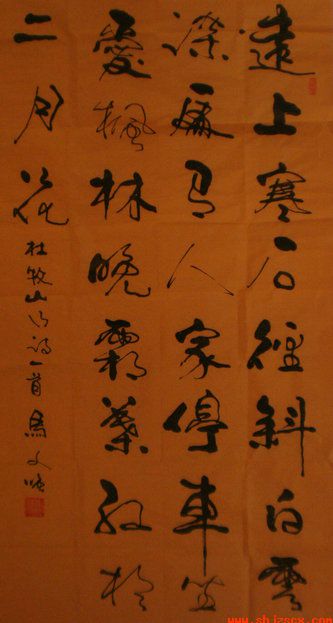 遠上寒石徑斜白雲
深處有人家停車坐
愛楓林晚霜葉紅於
二月花
杜牧山行詩一首 馬文